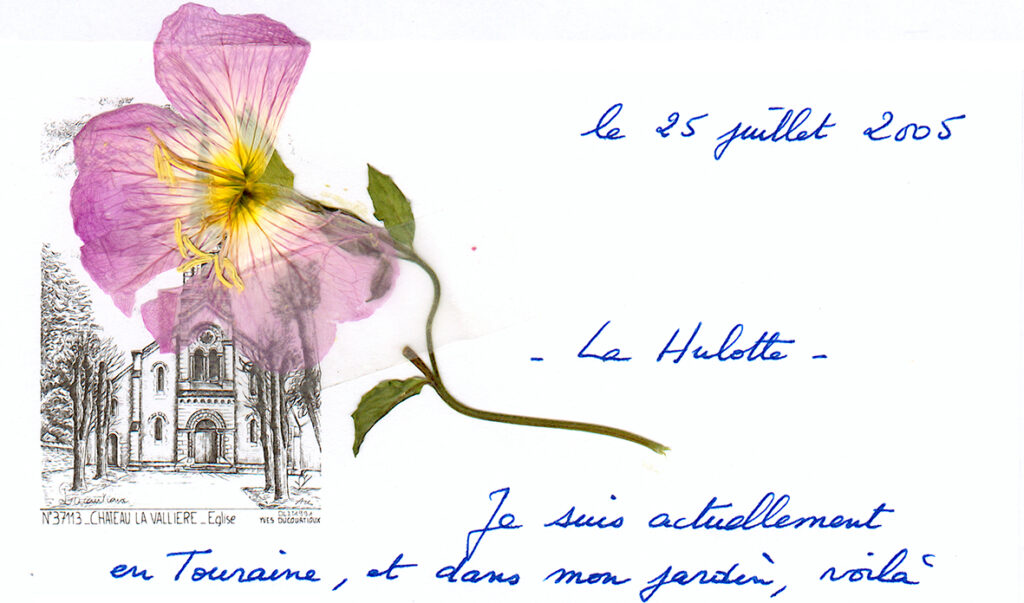 le 25 juillet 2005
- La Hulotte -
N°37113_CHATEAU LA VALLIERE_Eglise
YVES DUCOURTIOUX
Je suis actuellement
en Touraine, et dans mon jardin, voilà